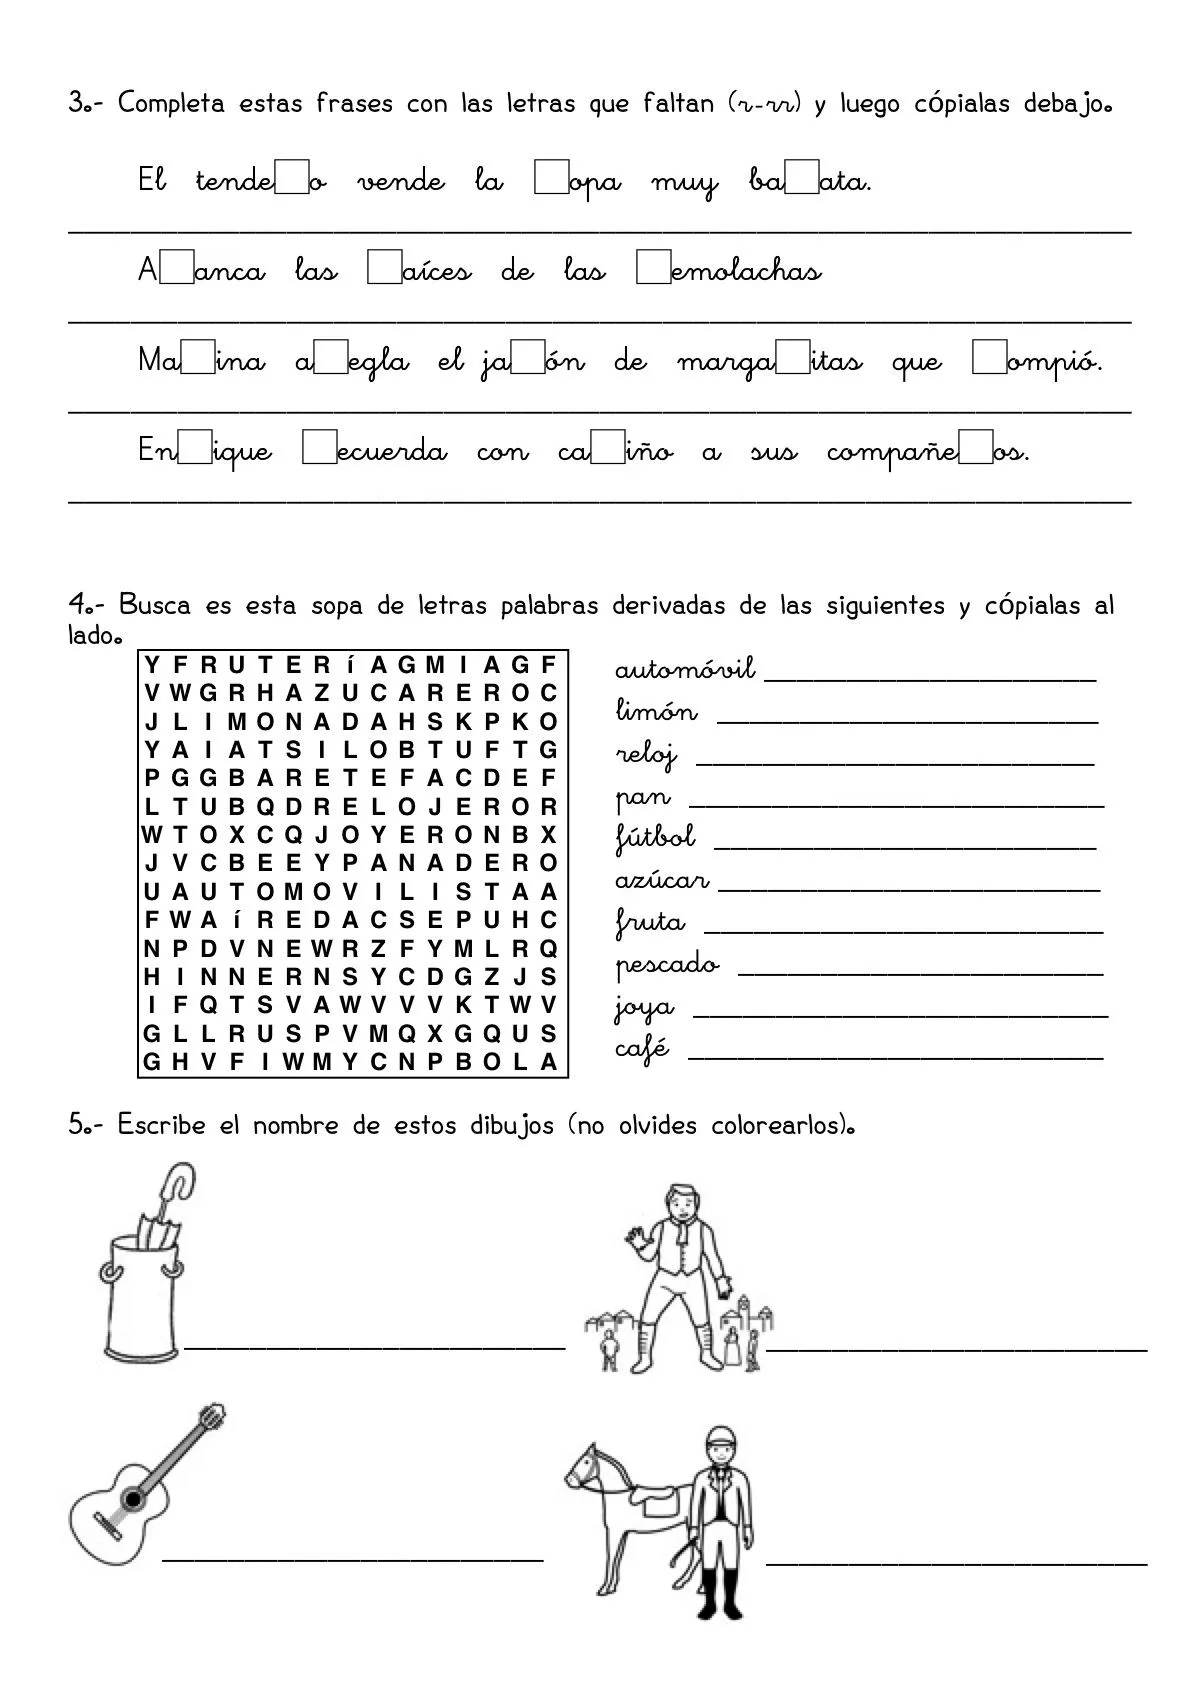 3.- Completa estas frases con las letras que faltan (r-rr) y luego cópialas debajo.
El tende□o vende la □opa muy ba□ata.
A□anca las □aíces de las □emolachas
Ma□ina a□egla el ja□ón de marga□itas que □ompió.
En□ique □ecuerda con ca□iño a sus compañe□os.
4.- Busca es esta sopa de letras palabras derivadas de las siguientes y cópialas al
lado.
Y F R U T E R í A G M I A G F
V W G R H A Z U C A R E R O C
J L I M O N A D A H S K P K O
Y A I A T S I L O B T U F T G
P G G B A R E T E F A C D E F
L T U B Q D R E L O J E R O R
W T O X C Q J O Y E R O N B X
J V C B E E Y P A N A D E R O
U A U T O M O V I L I S T A A
F W A í R E D A C S E P U H C
N P D V N E W R Z F Y M L R Q
H I N N E R N S Y C D G Z J S
I F Q T S V A W V V V K T W V
G L L R U S P V M Q X G Q U S
G H V F I W M Y C N P B O L A
automóvil
limón
reloj
pan
fútbol
azúcar
fruta
pescado
joya
café
5.- Escribe el nombre de estos dibujos (no olvides colorearlos).